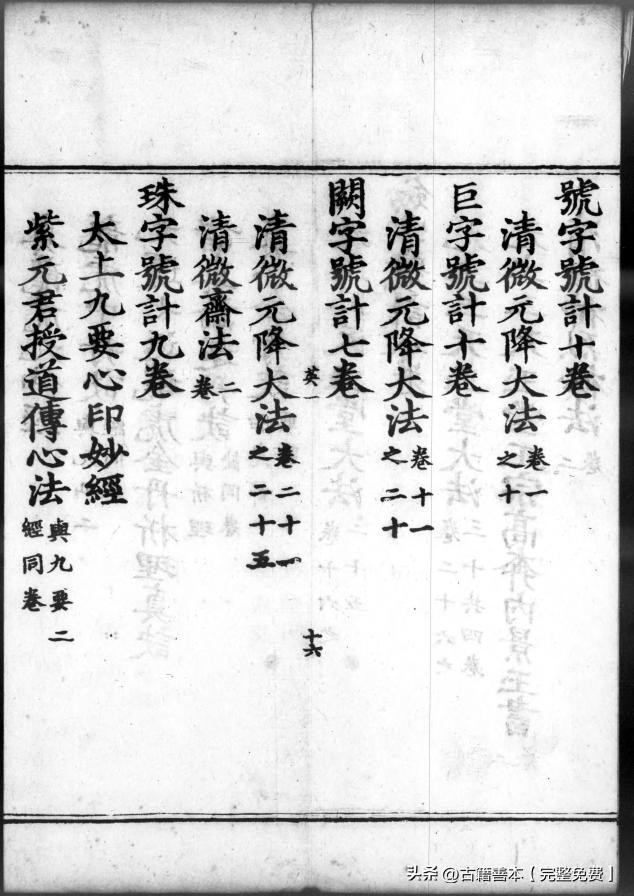 號字號計十卷
清微元降大法卷一之十
巨字號計十卷
清微元降大法卷十一之二十
闕字號計七卷
英一
十六
清微元降大法卷二十一之二十五
清微齋法二卷
珠字號計九卷
太上九要心印妙經
紫元君授道傳心法與九要二經同卷
头条 @古籍善本【完整免费】